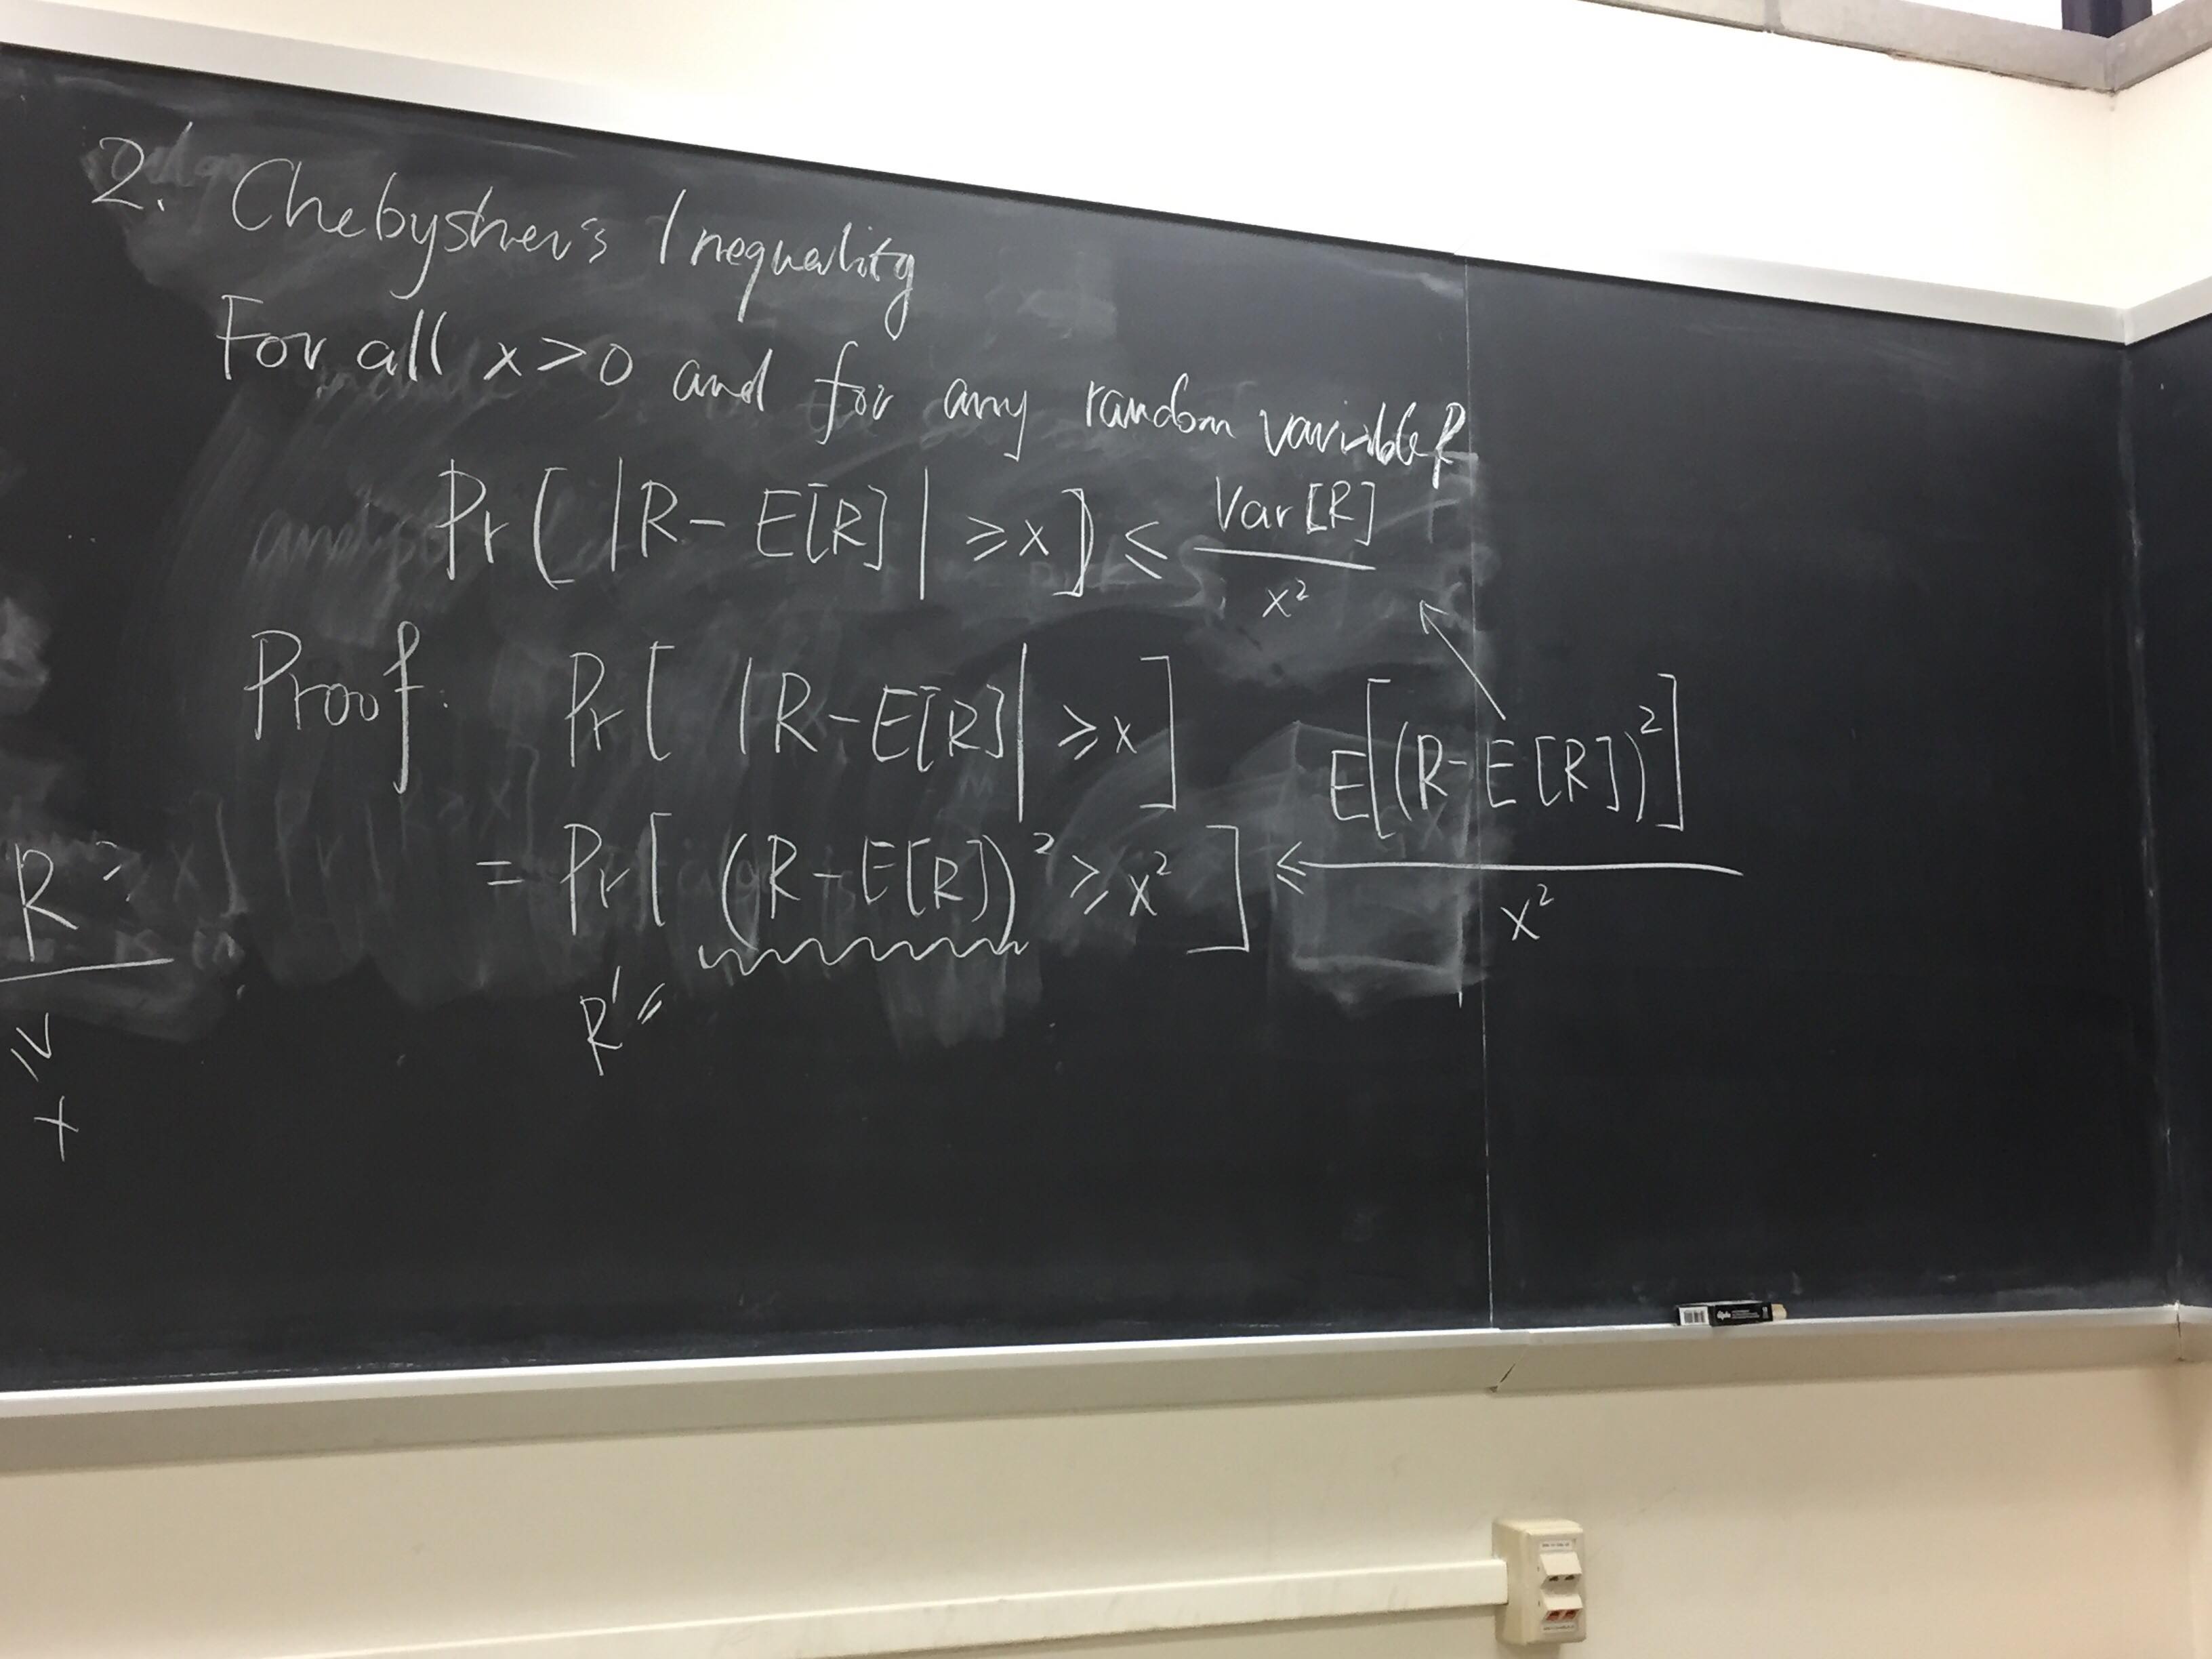 2. Chebyshev's Inequality
For all x > 0 and for any random variable R
Pr[ |R - E[R]| ≥ x ] ≤ Var[R] / x²
Proof. Pr[ |R - E[R]| ≥ x ]
= Pr[ (R - E[R])² ≥ x² ] ≤ E[(R - E[R])²] / x²
R' =
R ≥
≥
x